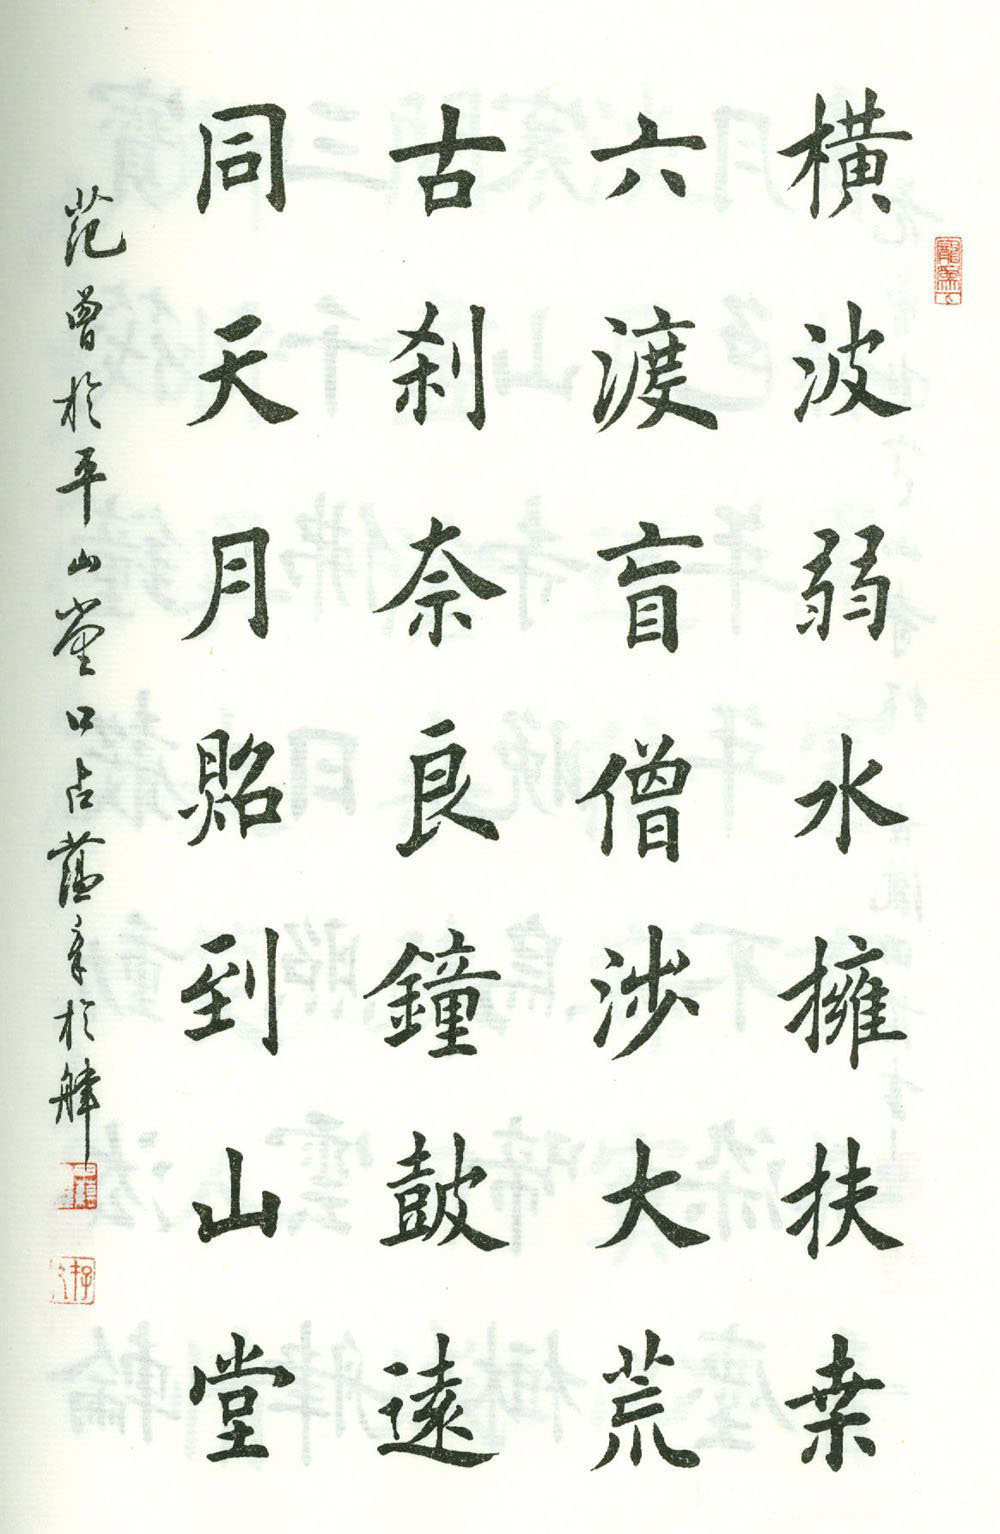 橫波弱水擁扶桒
六渡盲僧涉大荒
古刹奈良鐘鼓遠
同天月照到山堂
范曾於平山堂口占蕴章於